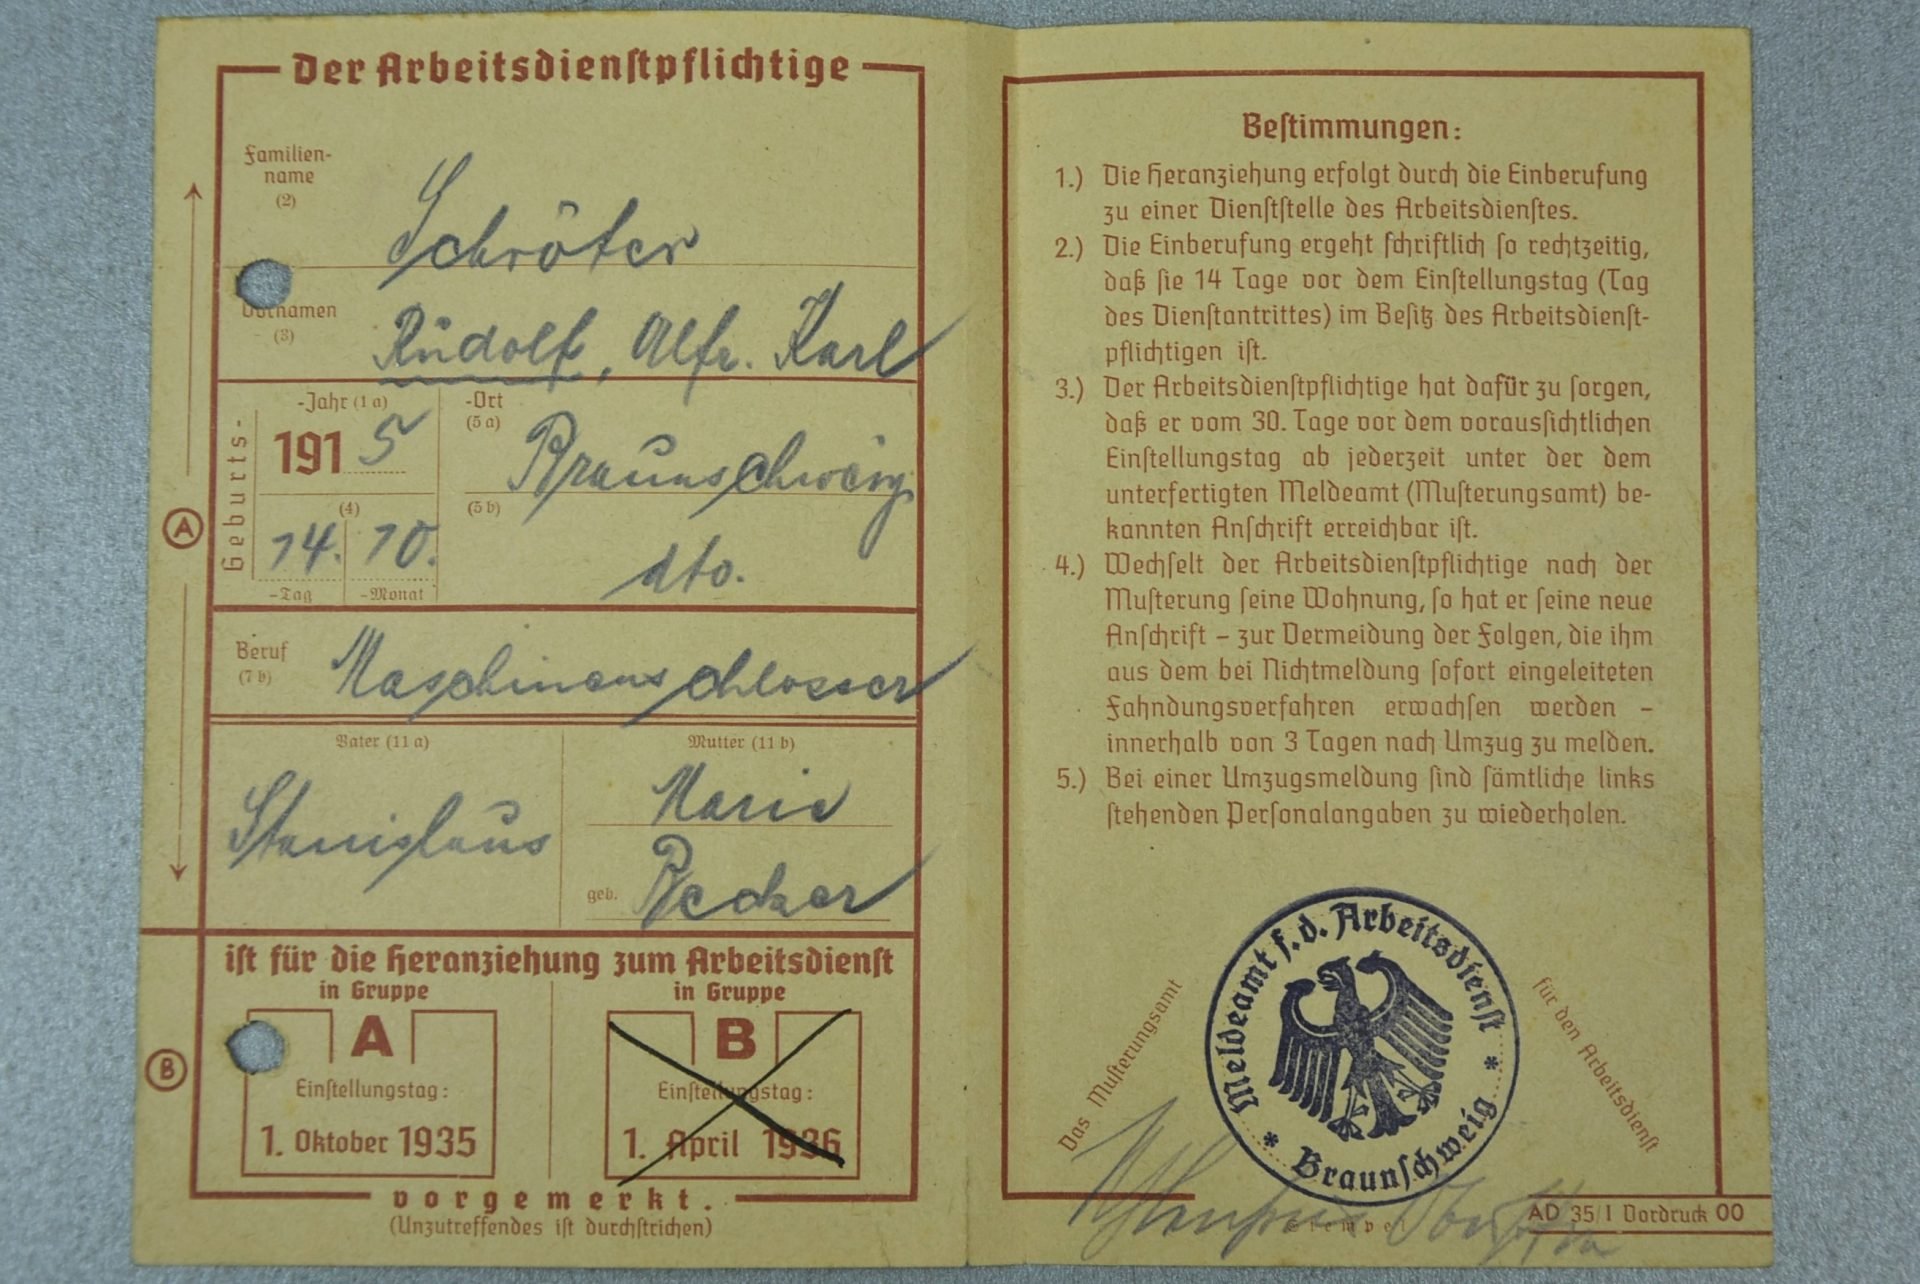 Der Arbeitsdienstpflichtige
Familien-
name
(2)
Schröter
Vornamen
(3)
Rudolf, Alfr. Karl
Geburts-
-Jahr (1 a)
1915
-Ort
(5 a)
Braunschweig
(4)
14. 10.
-Tag -Monat
(5 b)
dto.
A
Beruf
(7 b)
Maschinenschlosser
Vater (11 a)
Stanislaus
Mutter (11 b)
Marie
geb. Becker
ist für die Heranziehung zum Arbeitsdienst
in Gruppe
A
Einstellungstag:
1. Oktober 1935
in Gruppe
B
Einstellungstag:
1. April 1936
B
vorgemerkt.
(Unzutreffendes ist durchstrichen)
Bestimmungen:
1.) Die Heranziehung erfolgt durch die Einberufung
zu einer Dienststelle des Arbeitsdienstes.
2.) Die Einberufung ergeht schriftlich so rechtzeitig,
daß sie 14 Tage vor dem Einstellungstag (Tag
des Dienstantrittes) im Besitz des Arbeitsdienst-
pflichtigen ist.
3.) Der Arbeitsdienstpflichtige hat dafür zu sorgen,
daß er vom 30. Tage vor dem voraussichtlichen
Einstellungstag ab jederzeit unter der dem
unterfertigten Meldeamt (Musterungsamt) be-
kannten Anschrift erreichbar ist.
4.) Wechselt der Arbeitsdienstpflichtige nach der
Musterung seine Wohnung, so hat er seine neue
Anschrift – zur Vermeidung der Folgen, die ihm
aus dem bei Nichtmeldung sofort eingeleiteten
Fahndungsverfahren erwachsen werden –
innerhalb von 3 Tagen nach Umzug zu melden.
5.) Bei einer Umzugsmeldung sind sämtliche links
stehenden Personalangaben zu wiederholen.
Das Musterungsamt
für den Arbeitsdienst
Meldeamt f. d. Arbeitsdienst
* Braunschweig *
Stempel
AD 35/1 Vordruck 00